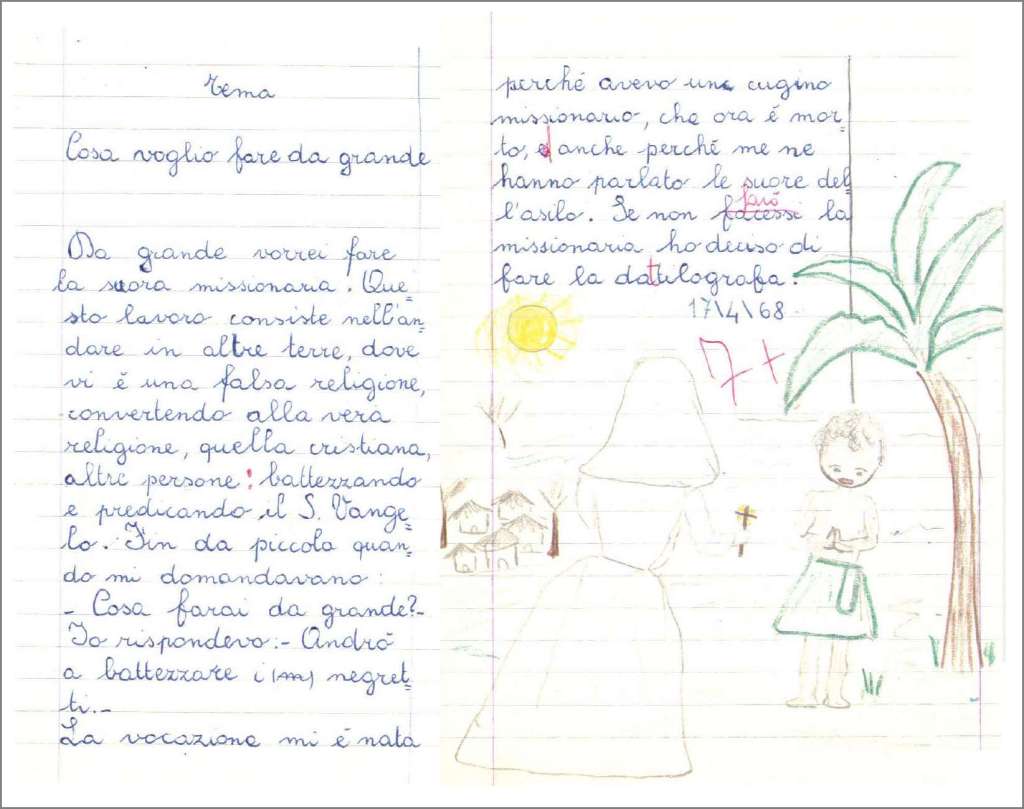 Tema
Cosa voglio fare da grande
Da grande vorrei fare
la suora missionaria. Que=
sto lavoro consiste nell'an=
dare in altre terre, dove
vi é una falsa religione,
convertendo alla vera
religione, quella cristiana,
altre persone: battezzando
e predicando il S. Vange=
lo. Fin da piccola quan=
do mi domandavano:
- Cosa farai da grande?-
Io rispondevo:- Andró
a battezzare i negret=
ti.-
La vocazione mi é nata
perché avevo un cugino
missionario, che ora é mor=
to, e anche perché me ne
hanno parlato le suore del=
l'asilo. Se non facessi la
faró
missionaria ho deciso di
fare la dattilografa.
17\4\68
7+